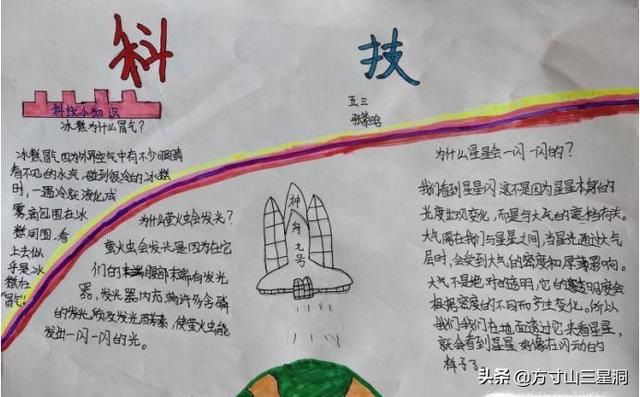 科
技
五三
科技小知识
冰糕为什么冒气?
冰糕冒气因为外界空气中有不少眼睛
看不见的水汽,碰到很冷的冰糕
时,一遇冷就液化成
雾滴包围在冰
糕周围,看
上去似
乎是冰
糕在
"冒气"。
为什么萤火虫会发光?
萤火虫会发光是因为在它
们的腹部末端有发光
器,发光器内充满许多含磷
的发光质及发光酵素,使萤火虫能
发出一闪一闪的光。
神
舟
九
号
为什么星星会一闪一闪的?
我们看到星星闪,这不是因为星星本身的
光度出现变化,而是与大气的遮挡有关。
大气隔在我们与星星之间,当星光通过大气
层时,会受到大气的密度和厚薄影响。
大气不是绝对的透明,它的透明度会
根据密度的不同而产生变化。所以
我们我们在地面透过它来看星星,
就会看到星星好像在闪动的
样子了
头条 @方寸山三星洞